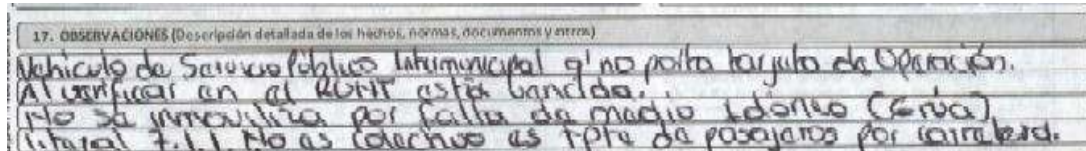 17. OBSERVACIONES (Descripción detallada de los hechos, normas, documentos y otros)
Vehiculo de Servicio Público Intermunicipal q' no porta tarjeta de Operación.
Al verificar en el RUNT esta vencida.
No se inmoviliza por falta de medio Idoneo (Grúa)
Literal 7.1.1. No es colectivo es tpte de pasajeros por carretera.